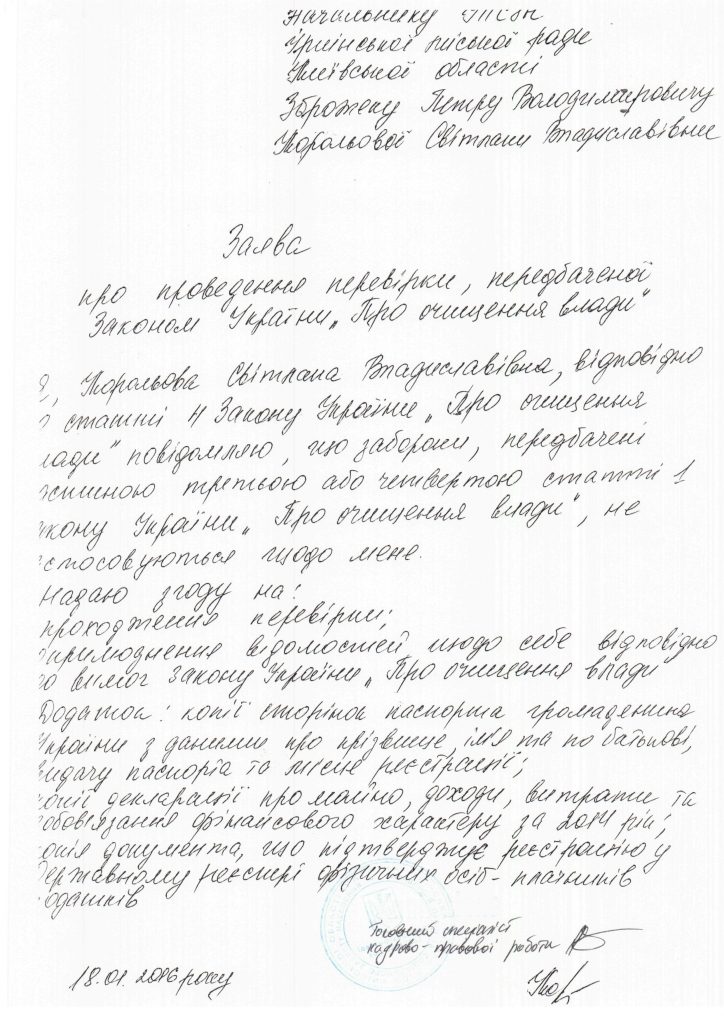 Начальнику
Ірпінської міської ради
Київської області
Зброжеку Петру Володимировичу
Корольової Світлани Владиславівни
Заява
про проведення перевірки, передбаченої
Законом України „Про очищення влади"
Я, Корольова Світлана Владиславівна, відповідно
о статті 4 Закону України „Про очищення
лади" повідомляю, що заборони, передбачені
астиною третьою або четвертою статті 1
акону України „Про очищення влади", не
астосовуються щодо мене.
Надаю згоду на:
проходження перевірки;
оприлюднення відомостей щодо себе відповідно
до вимог Закону України „Про очищення влади
Додаток: копії сторінок паспорта громадянина
України з даними про прізвище, ім'я та по батькові,
видачу паспорта та місце реєстрації;
копії декларації про майно, доходи, витрати та
зобов'язання фінансового характеру за 2014 рік;
копія документа, що підтверджує реєстрацію у
Державному реєстрі фізичних осіб-платників
одатків
Головний спеціаліст
кадрово-правової роботи
18.01.2016 року